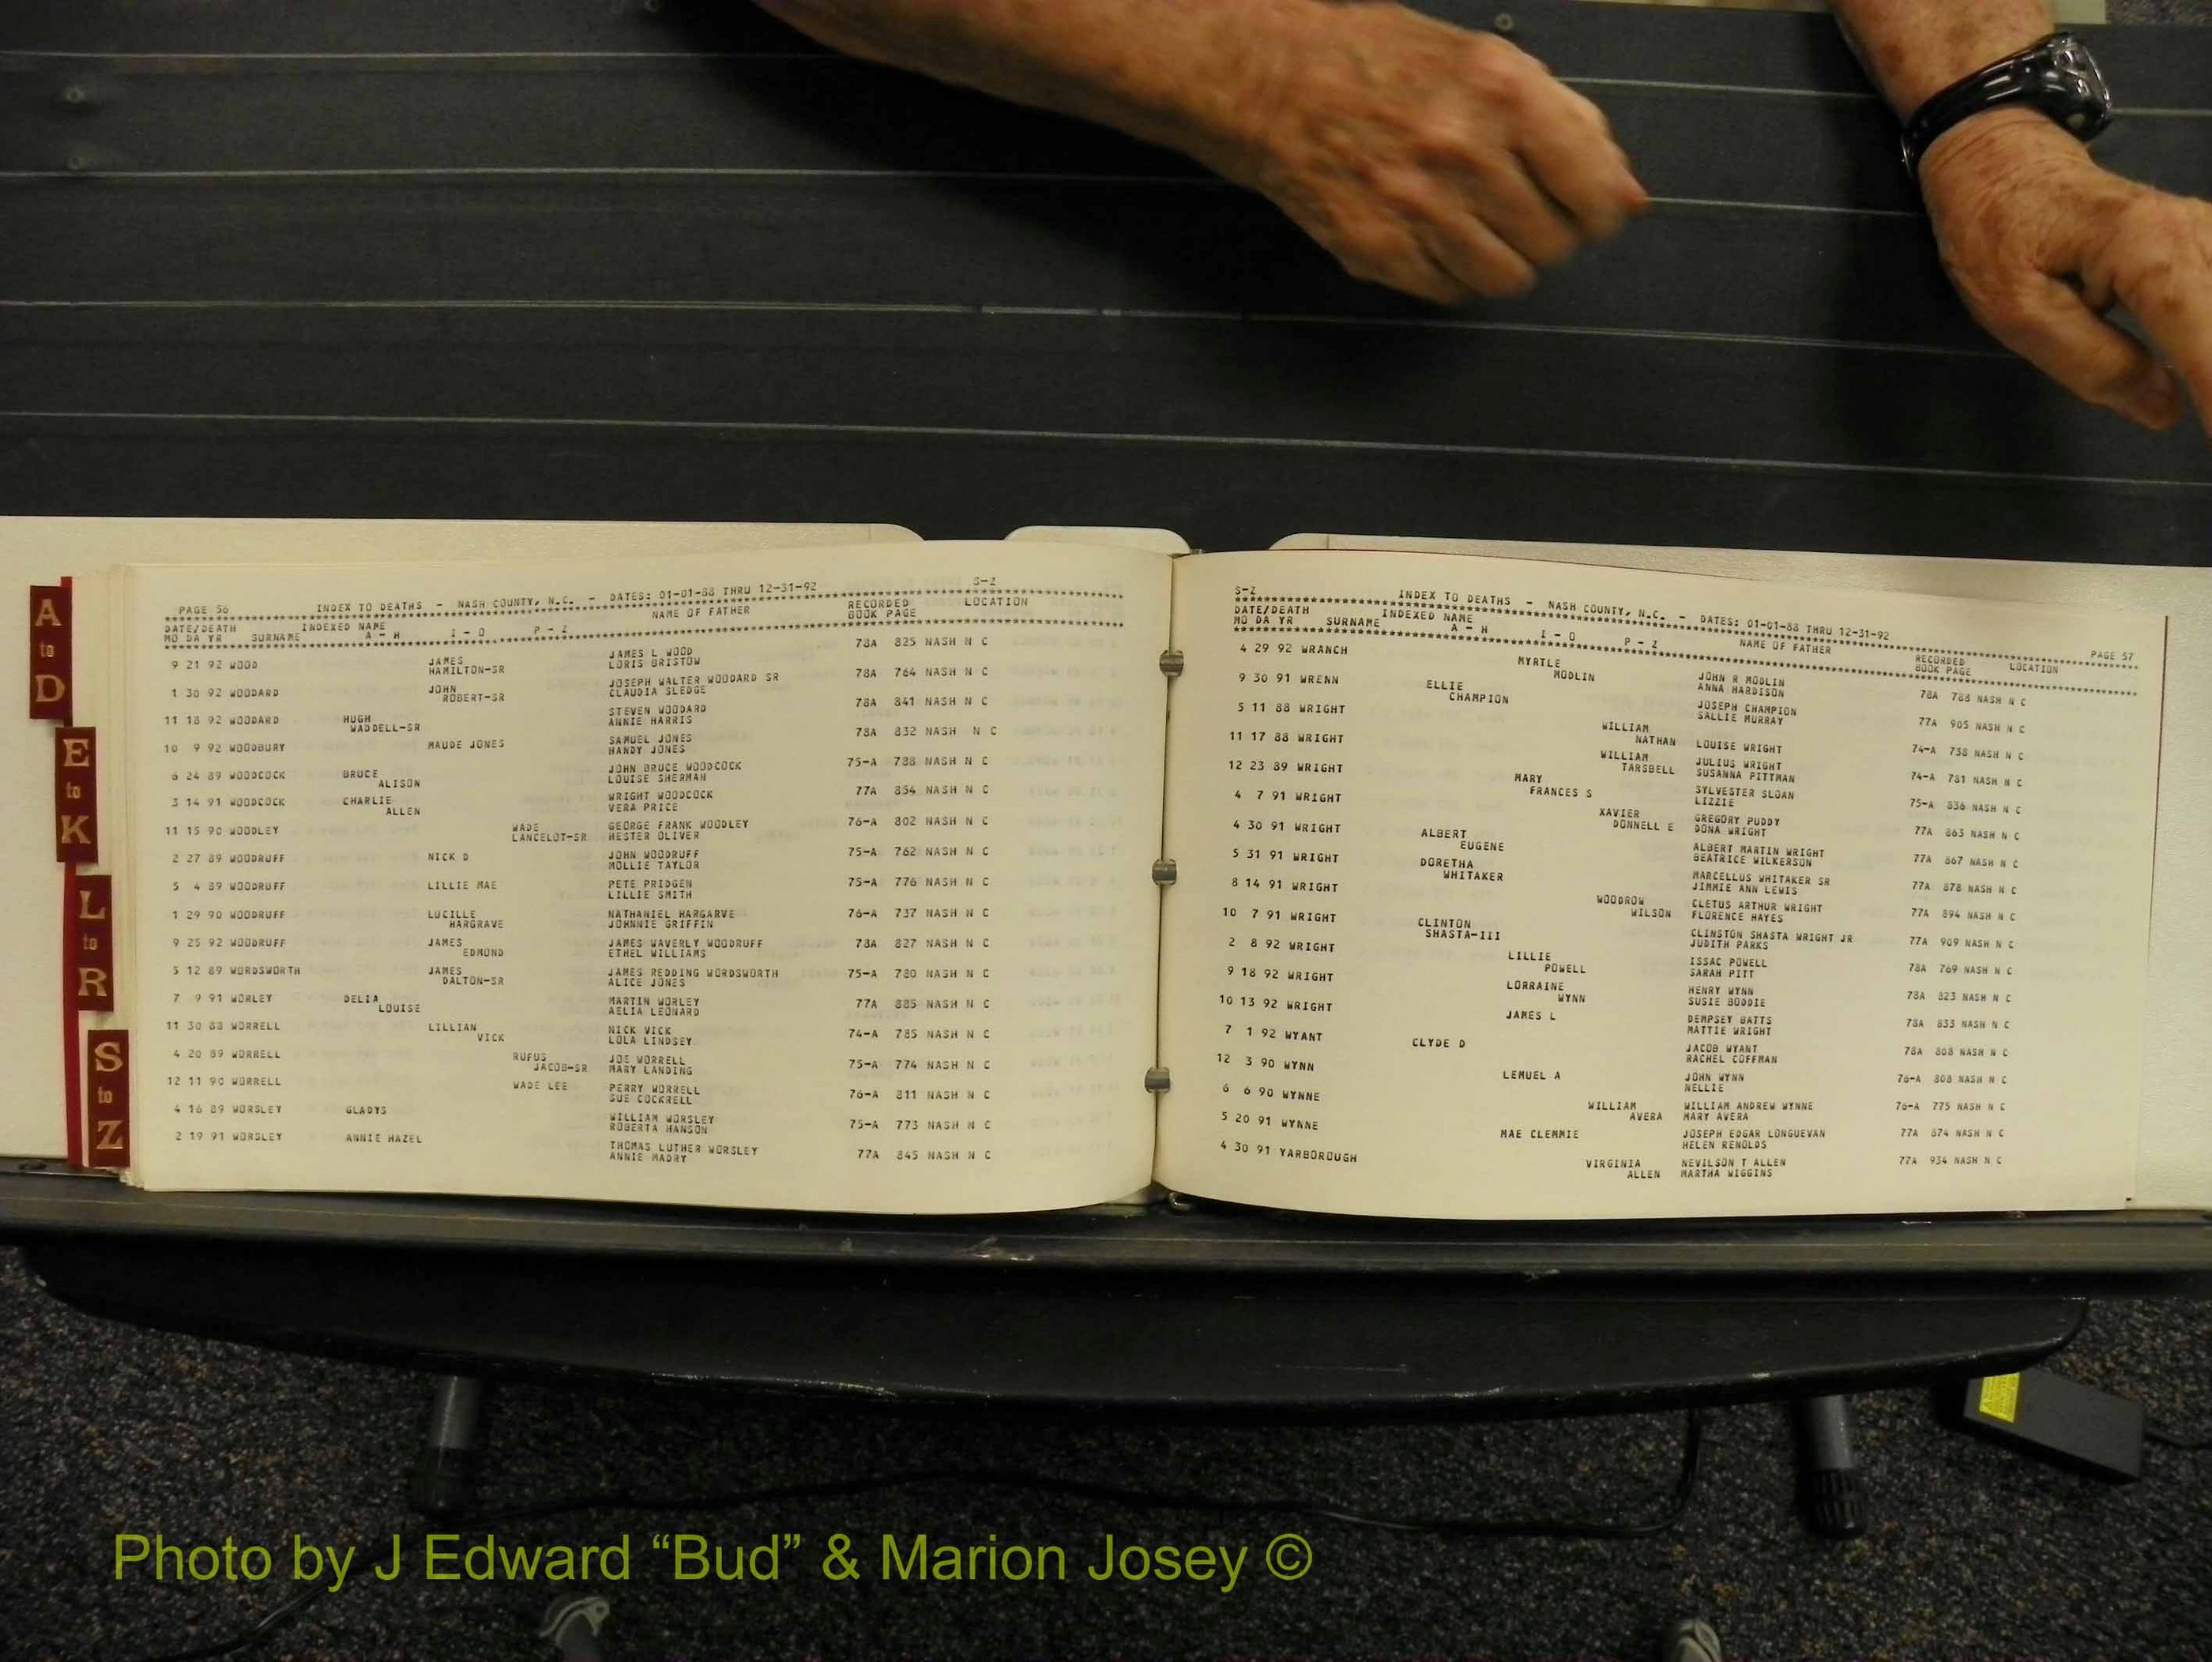 A
to
D
E
to
K
L
to
R
S
to
Z
S-Z
PAGE 56 INDEX TO DEATHS - NASH COUNTY, N.C. - DATES: 01-01-88 THRU 12-31-92
DATE/DEATH INDEXED NAME NAME OF FATHER RECORDED LOCATION
MO DA YR SURNAME A - H I - O P - Z BOOK PAGE
9 21 92 WOOD JAMES JAMES L WOOD 78A 825 NASH N C
HAMILTON-SR LORIS BRISTOW
1 30 92 WOODARD JOHN JOSEPH WALTER WOODARD SR 78A 764 NASH N C
ROBERT-SR CLAUDIA SLEDGE
11 18 92 WOODARD HUGH STEVEN WOODARD 78A 841 NASH N C
WADDELL-SR ANNIE HARRIS
10 9 92 WOODBURY MAUDE JONES SAMUEL JONES 78A 832 NASH N C
HANDY JONES
6 24 89 WOODCOCK BRUCE JOHN BRUCE WOODCOCK 75-A 788 NASH N C
ALISON LOUISE SHERMAN
3 14 91 WOODCOCK CHARLIE WRIGHT WOODCOCK 77A 854 NASH N C
ALLEN VERA PRICE
11 15 90 WOODLEY WADE GEORGE FRANK WOODLEY 76-A 802 NASH N C
LANCELOT-SR HESTER OLIVER
2 27 89 WOODRUFF NICK D JOHN WOODRUFF 75-A 762 NASH N C
MOLLIE TAYLOR
5 4 89 WOODRUFF LILLIE MAE PETE PRIDGEN 75-A 776 NASH N C
LILLIE SMITH
1 29 90 WOODRUFF LUCILLE NATHANIEL HARGARVE 76-A 737 NASH N C
HARGRAVE JOHNNIE GRIFFIN
9 25 92 WOODRUFF JAMES JAMES WAVERLY WOODRUFF 78A 827 NASH N C
EDMUND ETHEL WILLIAMS
5 12 89 WORDSWORTH JAMES JAMES REDDING WORDSWORTH 75-A 780 NASH N C
DALTON-SR ALICE JONES
7 9 91 WORLEY DELIA MARTIN WORLEY 77A 885 NASH N C
LOUISE AELIA LEONARD
11 30 88 WORRELL LILLIAN NICK VICK 74-A 785 NASH N C
VICK LOLA LINDSEY
4 20 89 WORRELL RUFUS JOE WORRELL 75-A 774 NASH N C
JACOB-SR MARY LANDING
12 11 90 WORRELL WADE LEE PERRY WORRELL 76-A 811 NASH N C
SUE COCKRELL
4 16 89 WORSLEY GLADYS WILLIAM WORSLEY 75-A 773 NASH N C
ROBERTA HANSON
2 19 91 WORSLEY ANNIE HAZEL THOMAS LUTHER WORSLEY 77A 845 NASH N C
ANNIE MADRY
S-Z INDEX TO DEATHS - NASH COUNTY, N.C. - DATES: 01-01-88 THRU 12-31-92 PAGE 57
DATE/DEATH INDEXED NAME NAME OF FATHER RECORDED LOCATION
MO DA YR SURNAME A - H I - O P - Z BOOK PAGE
4 29 92 WRANCH MYRTLE JOHN R MODLIN 78A 788 NASH N C
MODLIN ANNA HARDISON
9 30 91 WRENN ELLIE JOSEPH CHAMPION 77A 905 NASH N C
CHAMPION SALLIE MURRAY
5 11 88 WRIGHT WILLIAM 74-A 738 NASH N C
NATHAN LOUISE WRIGHT
11 17 88 WRIGHT WILLIAM JULIUS WRIGHT 74-A 781 NASH N C
TARSBELL SUSANNA PITTMAN
12 23 89 WRIGHT MARY SYLVESTER SLOAN 75-A 836 NASH N C
FRANCES S LIZZIE
4 7 91 WRIGHT XAVIER GREGORY PUDDY 77A 863 NASH N C
DONNELL E DONA WRIGHT
4 30 91 WRIGHT ALBERT ALBERT MARTIN WRIGHT 77A 867 NASH N C
EUGENE BEATRICE WILKERSON
5 31 91 WRIGHT DORETHA MARCELLUS WHITAKER SR 77A 878 NASH N C
WHITAKER JIMMIE ANN LEWIS
8 14 91 WRIGHT WOODROW CLETUS ARTHUR WRIGHT 77A 894 NASH N C
WILSON FLORENCE HAYES
10 7 91 WRIGHT CLINTON CLINSTON SHASTA WRIGHT JR 77A 909 NASH N C
SHASTA-III JUDITH PARKS
2 8 92 WRIGHT LILLIE ISSAC POWELL 78A 769 NASH N C
POWELL SARAH PITT
9 18 92 WRIGHT LORRAINE HENRY WYNN 78A 823 NASH N C
WYNN SUSIE BODDIE
10 13 92 WRIGHT JAMES L DEMPSEY BATTS 78A 833 NASH N C
MATTIE WRIGHT
7 1 92 WYANT CLYDE D JACOB WYANT 78A 808 NASH N C
RACHEL COFFMAN
12 3 90 WYNN LEMUEL A JOHN WYNN 76-A 808 NASH N C
NELLIE
6 6 90 WYNNE WILLIAM WILLIAM ANDREW WYNNE 76-A 775 NASH N C
AVERA MARY AVERA
5 20 91 WYNNE MAE CLEMMIE JOSEPH EDGAR LONGUEVAN 77A 874 NASH N C
HELEN RENOLDS
4 30 91 YARBOROUGH VIRGINIA NEVILSON T ALLEN 77A 934 NASH N C
ALLEN MARTHA WIGGINS
Photo by J Edward “Bud” & Marion Josey ©